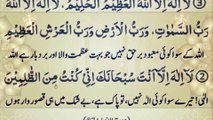 ③ لَا إِلٰهَ إِلَّا اللهُ الْعَظِيْمُ الْحَلِيْمُ۔ لَا إِلٰهَ إِلَّا اللهُ
رَبُّ السَّمٰوٰتِ۔ وَرَبُّ الْأَرْضِ وَرَبُّ الْعَرْشِ الْعَظِيْمِ
اللہ کے سوا کوئی معبود برحق نہیں جو بہت عظمت والا اور بردبار ہے اللہ
② لَا إِلٰهَ إِلَّا أَنْتَ سُبْحَانَكَ إِنِّي كُنْتُ مِنَ الظّٰلِمِيْنَ
الٰہی! تیرے سوا کوئی الٰہ نہیں، تو پاک ہے، بے شک میں ہی قصوروار ہوں